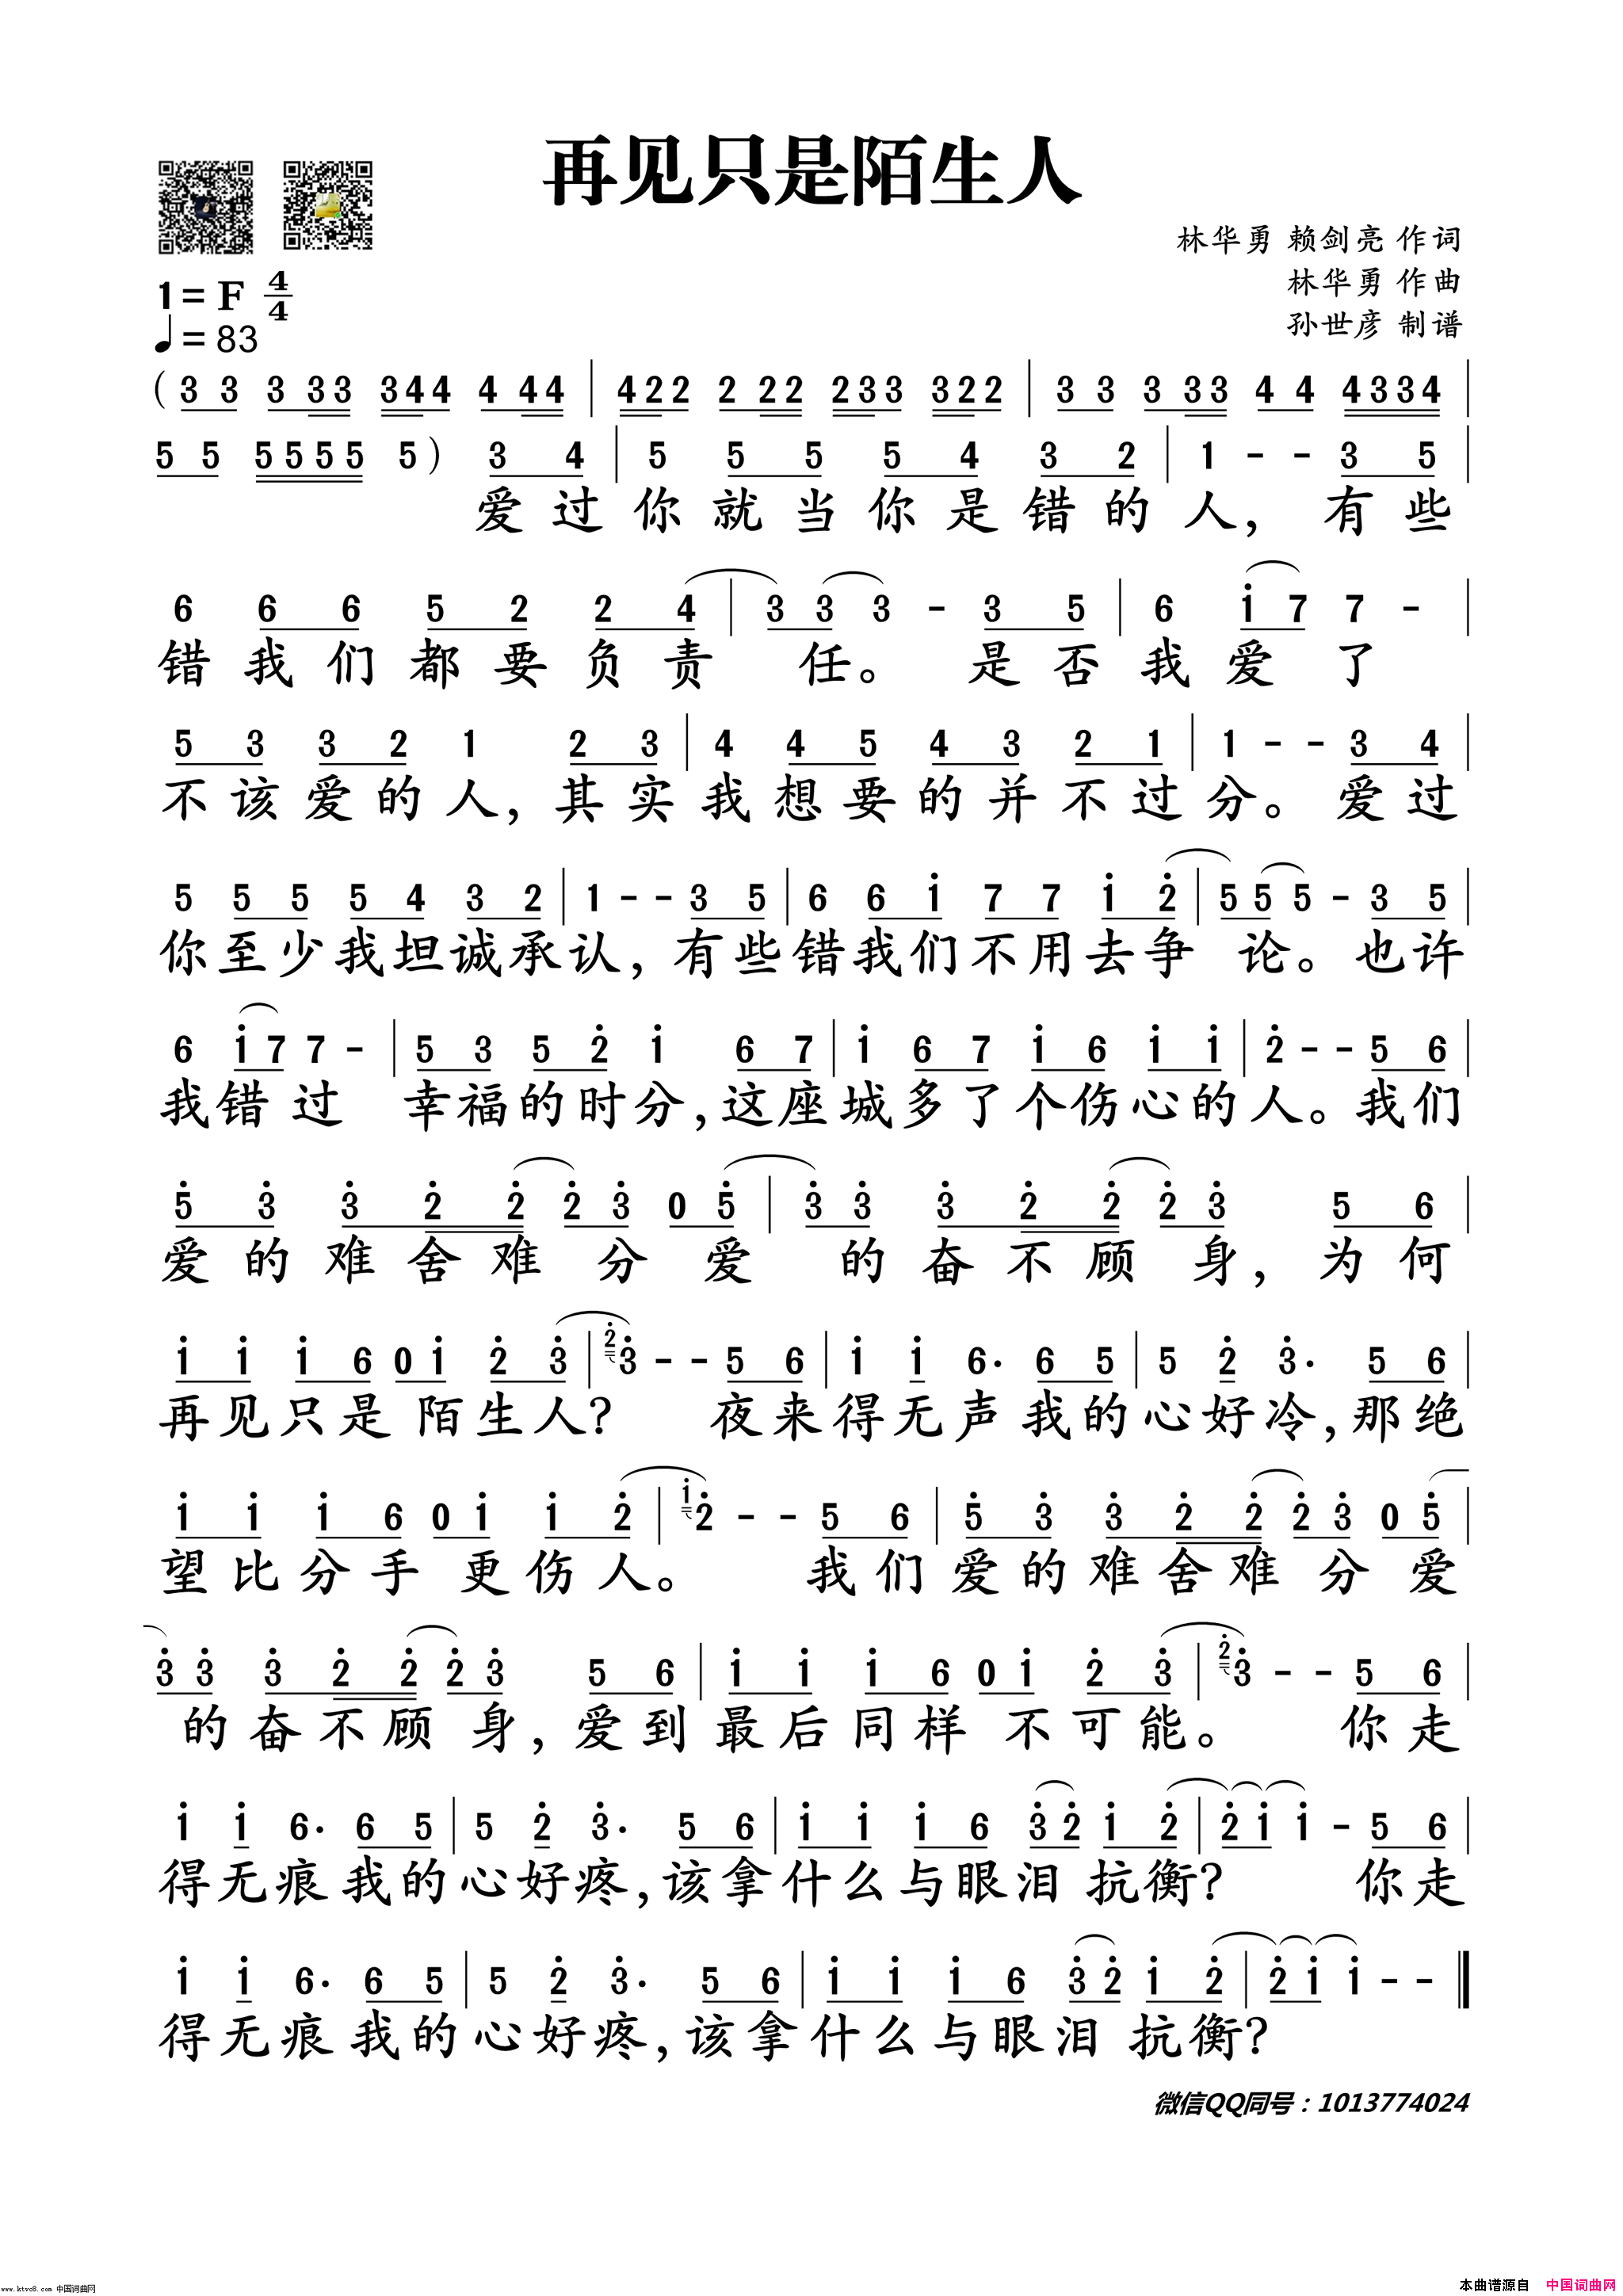 再见只是陌生人
林华勇 赖剑亮 作词
林华勇 作曲
孙世彦 制谱
1= F 4/4
♩= 83
( 3 3 3 33 344 4 44 | 422 2 22 233 322 | 3 3 3 33 4 4 4334 |
5 5 5555 5 ) 3 4 | 5 5 5 5 4 3 2 | 1 - - 3 5 |
爱过你就当你是错的人, 有些
6 6 6 5 2 2 4 | 3 3 3 - 3 5 | 6 i 7 7 - |
错我们都要负责 任。 是否我爱了
5 3 3 2 1 2 3 | 4 4 5 4 3 2 1 | 1 - - 3 4 |
不该爱的人, 其实我想要的并不过分。 爱过
5 5 5 5 4 3 2 | 1 - - 3 5 | 6 6 i 7 7 i 2̇ | 5 5 5 - 3 5 |
你至少我坦诚承认, 有些错我们不用去争 论。也许
6 i 7 7 - | 5 3 5 2̇ i 6 7 | i 6 7 i 6 i i | 2̇ - - 5 6 |
我错过 幸福的时分, 这座城多了个伤心的人。我们
5̇ 3̇ 3̇ 2̇ 2̇ 2̇ 3̇ 0 5̇ | 3̇ 3̇ 3̇ 2̇ 2̇ 2̇ 3̇ 5 6 |
爱的难舍难 分 爱 的奋不顾 身, 为何
i i i 6 0 i 2̇ 3̇ | 2̇ 3̇ - - 5 6 | i i 6· 6 5 | 5 2̇ 3̇· 5 6 |
再见只是 陌生人? 夜来得无声我的心好冷, 那绝
i i i 6 0 i i 2̇ | i 2̇ - - 5 6 | 5̇ 3̇ 3̇ 2̇ 2̇ 2̇ 3̇ 0 5̇ |
望比分手 更伤人。 我们爱的难舍难 分 爱
3̇ 3̇ 3̇ 2̇ 2̇ 2̇ 3̇ 5 6 | i i i 6 0 i 2̇ 3̇ | 2̇ 3̇ - - 5 6 |
的奋不顾 身, 爱到最后同样 不可能。 你走
i i 6· 6 5 | 5 2̇ 3̇· 5 6 | i i i 6 3̇ 2̇ i 2̇ | 2̇ i i - 5 6 |
得无痕我的心好疼, 该拿什么与眼泪 抗衡? 你走
i i 6· 6 5 | 5 2̇ 3̇· 5 6 | i i i 6 3̇ 2̇ i 2̇ | 2̇ i i - - ‖
得无痕我的心好疼, 该拿什么与眼泪 抗衡?
微信QQ同号：1013774024
www.ktvc8.com 中国词曲网
本曲谱源自 中国词曲网